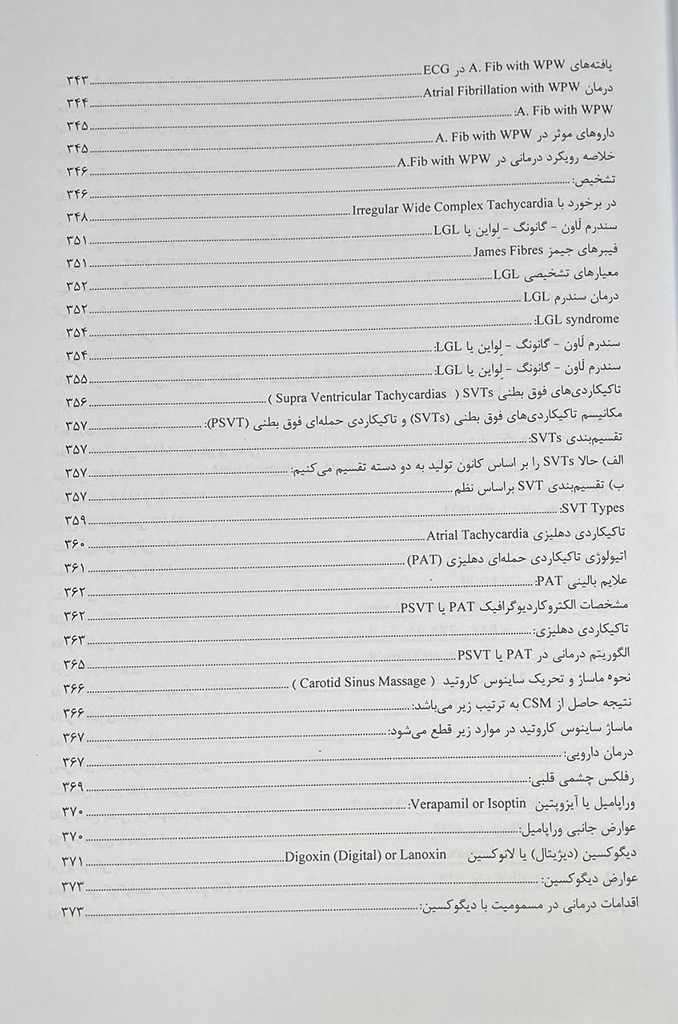 یافته‌های A. Fib with WPW در ECG ..... ۳۴۳
درمان Atrial Fibrillation with WPW ..... ۳۴۴
A. Fib with WPW: ..... ۳۴۵
داروهای موثر در A. Fib with WPW ..... ۳۴۵
خلاصه رویکرد درمانی در A.Fib with WPW ..... ۳۴۶
تشخیص: ..... ۳۴۶
در برخورد با Irregular Wide Complex Tachycardia ..... ۳۴۸
سندرم لَاون - گانونگ - لِواین یا LGL ..... ۳۵۱
فیبرهای جیمز James Fibres ..... ۳۵۱
معیارهای تشخیصی LGL ..... ۳۵۲
درمان سندرم LGL ..... ۳۵۲
LGL syndrome: ..... ۳۵۴
سندرم لَاون - گانونگ - لِواین یا LGL: ..... ۳۵۴
سندرم لَاون - گانونگ - لِواین یا LGL: ..... ۳۵۵
تاکیکاردی‌های فوق بطنی SVTs ( Supra Ventricular Tachycardias ) ..... ۳۵۶
مکانیسم تاکیکاردی‌های فوق بطنی (SVTs) و تاکیکاردی حمله‌ای فوق بطنی (PSVT): ..... ۳۵۷
تقسیم‌بندی SVTs: ..... ۳۵۷
الف) حالا SVTs را بر اساس کانون تولید به دو دسته تقسیم می‌کنیم: ..... ۳۵۷
ب) تقسیم‌بندی SVT براساس نظم ..... ۳۵۷
SVT Types: ..... ۳۵۹
تاکیکاردی دهلیزی Atrial Tachycardia ..... ۳۶۰
اتیولوژی تاکیکاردی حمله‌ای دهلیزی (PAT) ..... ۳۶۱
علایم بالینی PAT: ..... ۳۶۲
مشخصات الکتروکاردیوگرافیک PAT یا PSVT ..... ۳۶۲
تاکیکاردی دهلیزی: ..... ۳۶۳
الگوریتم درمانی در PAT یا PSVT ..... ۳۶۵
نحوه ماساژ و تحریک ساینوس کاروتید ( Carotid Sinus Massage ) ..... ۳۶۶
نتیجه حاصل از CSM به ترتیب زیر می‌باشد: ..... ۳۶۶
ماساژ ساینوس کاروتید در موارد زیر قطع می‌شود: ..... ۳۶۷
درمان دارویی: ..... ۳۶۷
رفلکس چشمی قلبی: ..... ۳۶۹
وراپامیل یا آیزوپتین Verapamil or Isoptin: ..... ۳۷۰
عوارض جانبی وراپامیل: ..... ۳۷۰
دیگوکسین (دیژیتال) یا لانوکسین Digoxin (Digital) or Lanoxin ..... ۳۷۱
عوارض دیگوکسین: ..... ۳۷۳
اقدامات درمانی در مسمومیت با دیگوکسین: ..... ۳۷۳